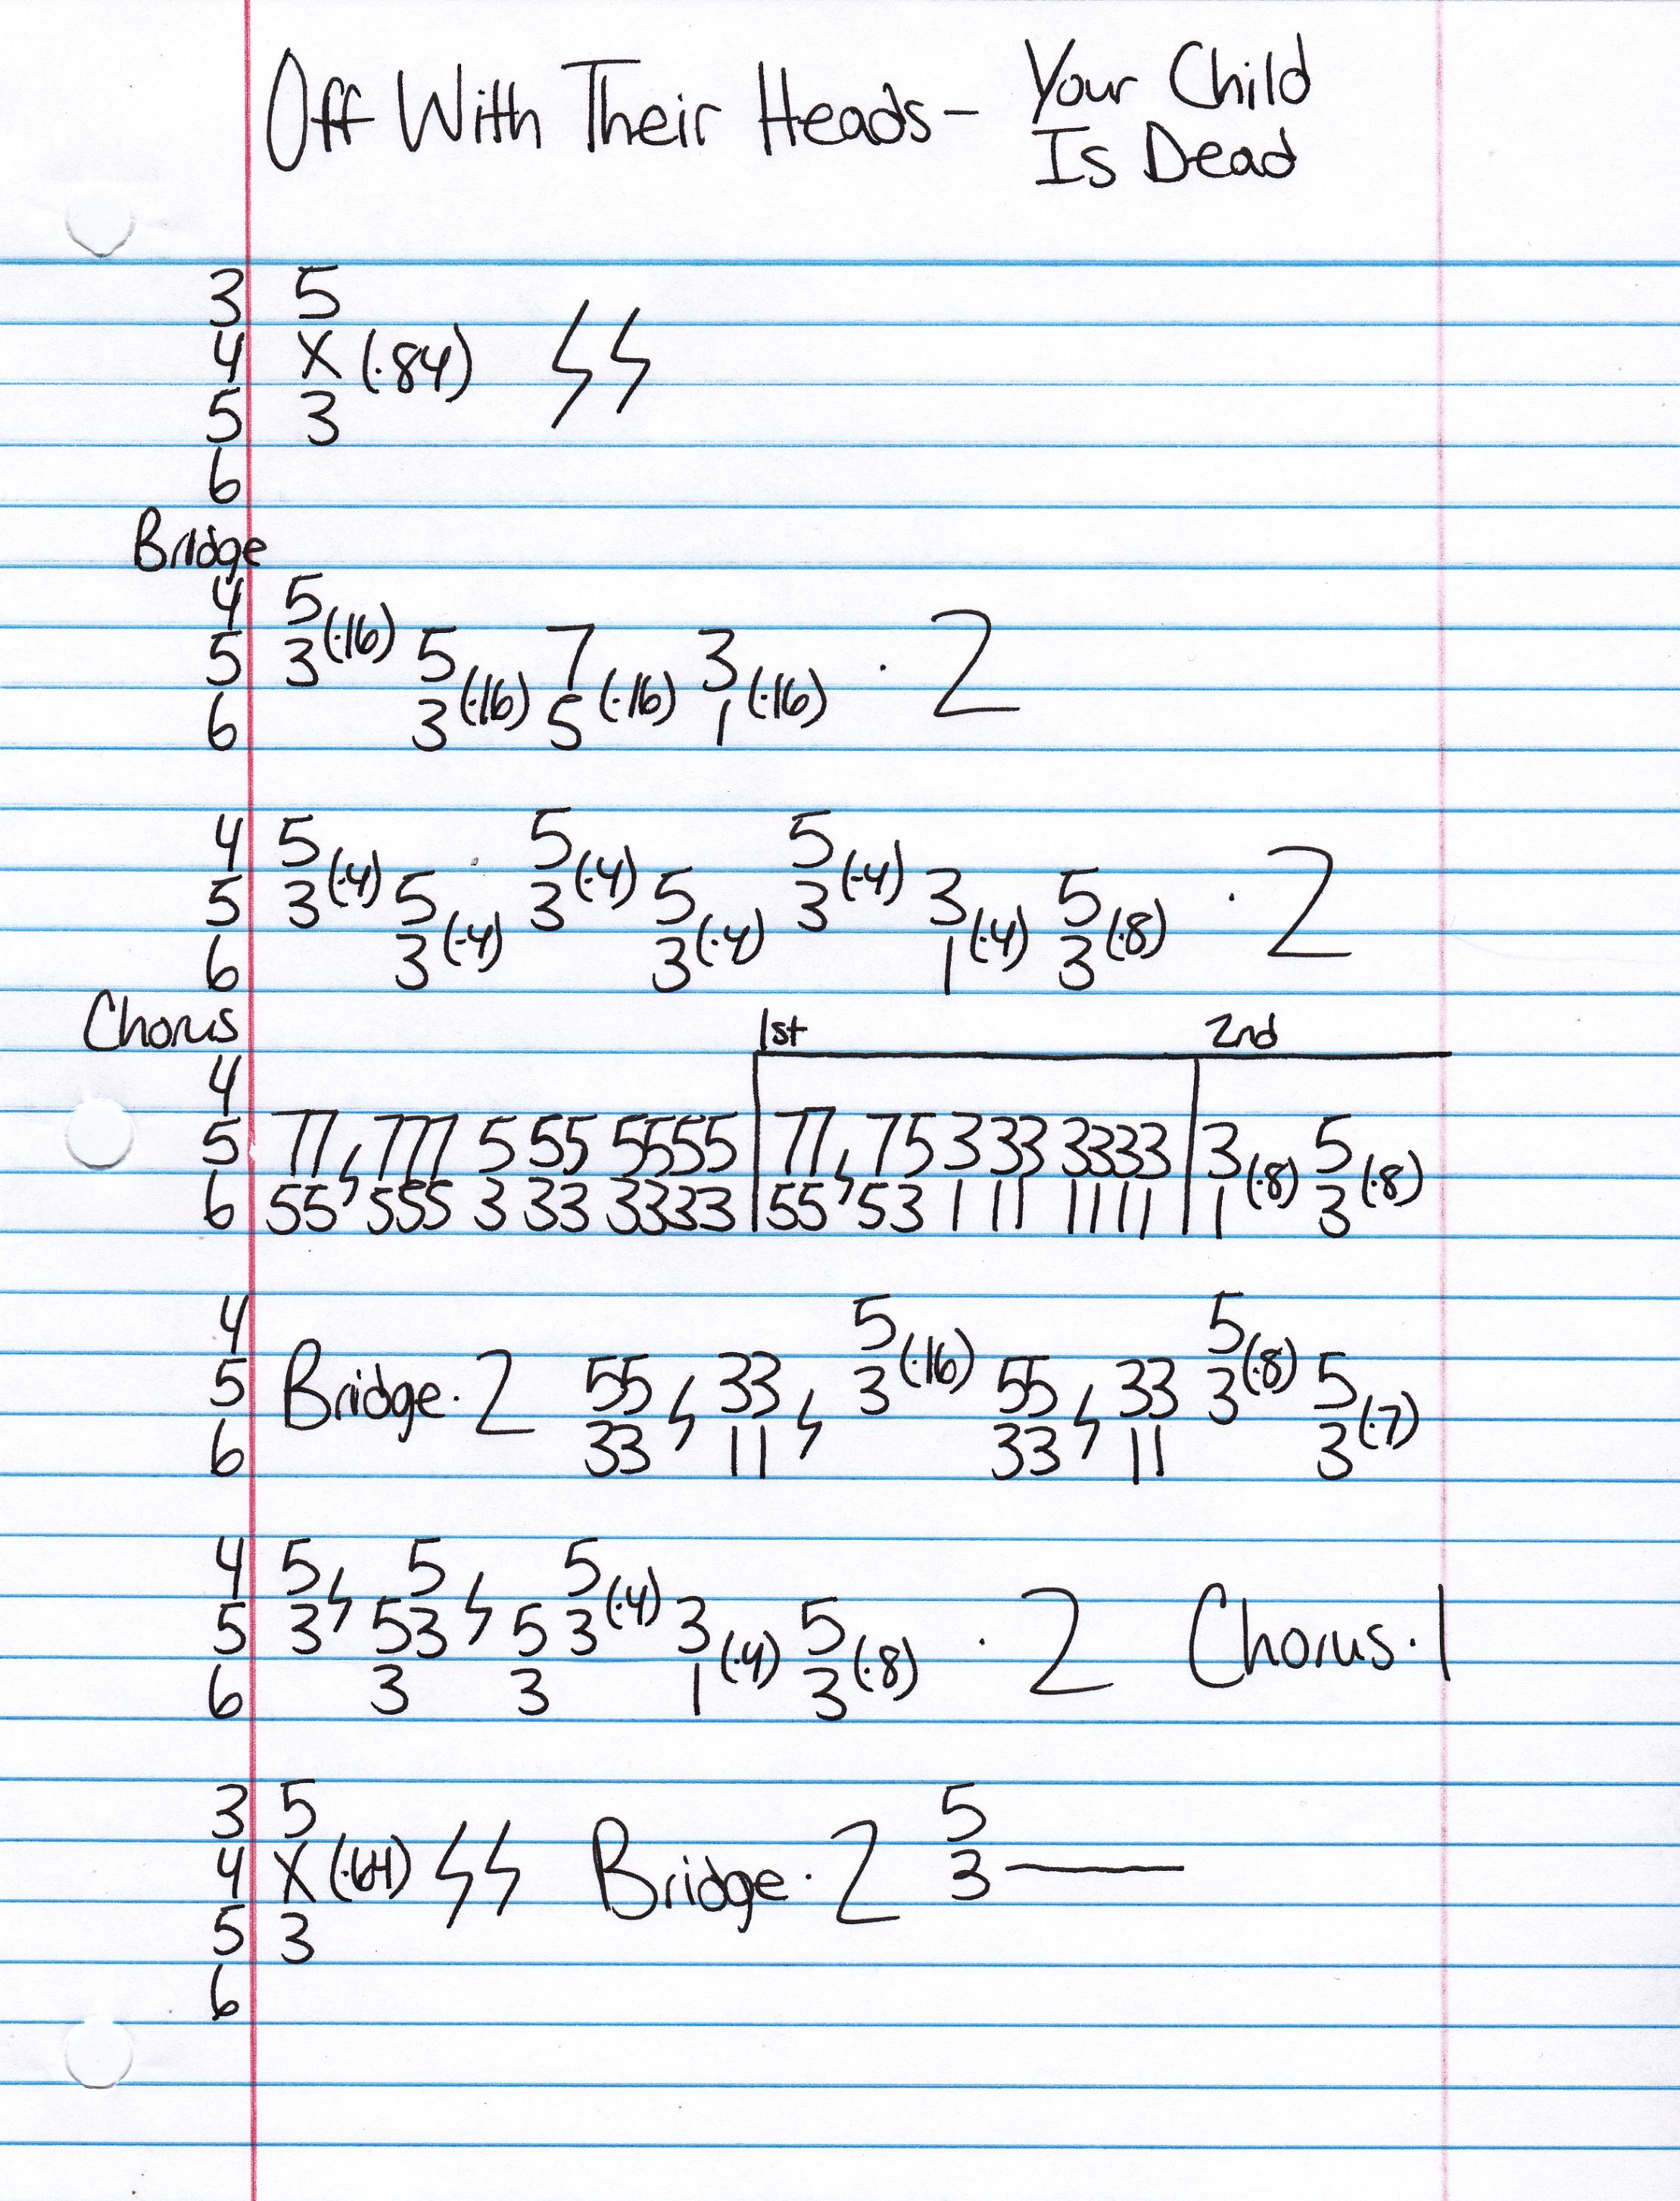 Off With Their Heads - Your Child
Is Dead
3 5
4 X (·84)
5 3
6
Bridge
4 5
5 3 (·16) 5 7 3 · 2
6 3 (·16) 5 (·16) 1 (·16)
4 5 5 5
5 3 (·4) 5 3 (·4) 5 3 (·4) 3 5 · 2
6 3 (·4) 3 (·4) 1 (·4) 3 (·8)
Chorus 1st 2nd
4
5 77, 777 5 55 5555 77, 75 3 33 3333 3 5
6 55 555 3 33 3333 55 53 1 11 1111 1 (·8) 3 (·8)
4 5 5
5 Bridge · 2 55 33 3 (·16) 55 33 3 (·8) 5
6 33 11 33 11 3 (·7)
4 5 5 5
5 3 53 5 3 (·4) 3 5 · 2 Chorus · 1
6 3 3 1 (·4) 3 (·8)
3 5 5
4 X (·64) Bridge · 2 3
5 3
6